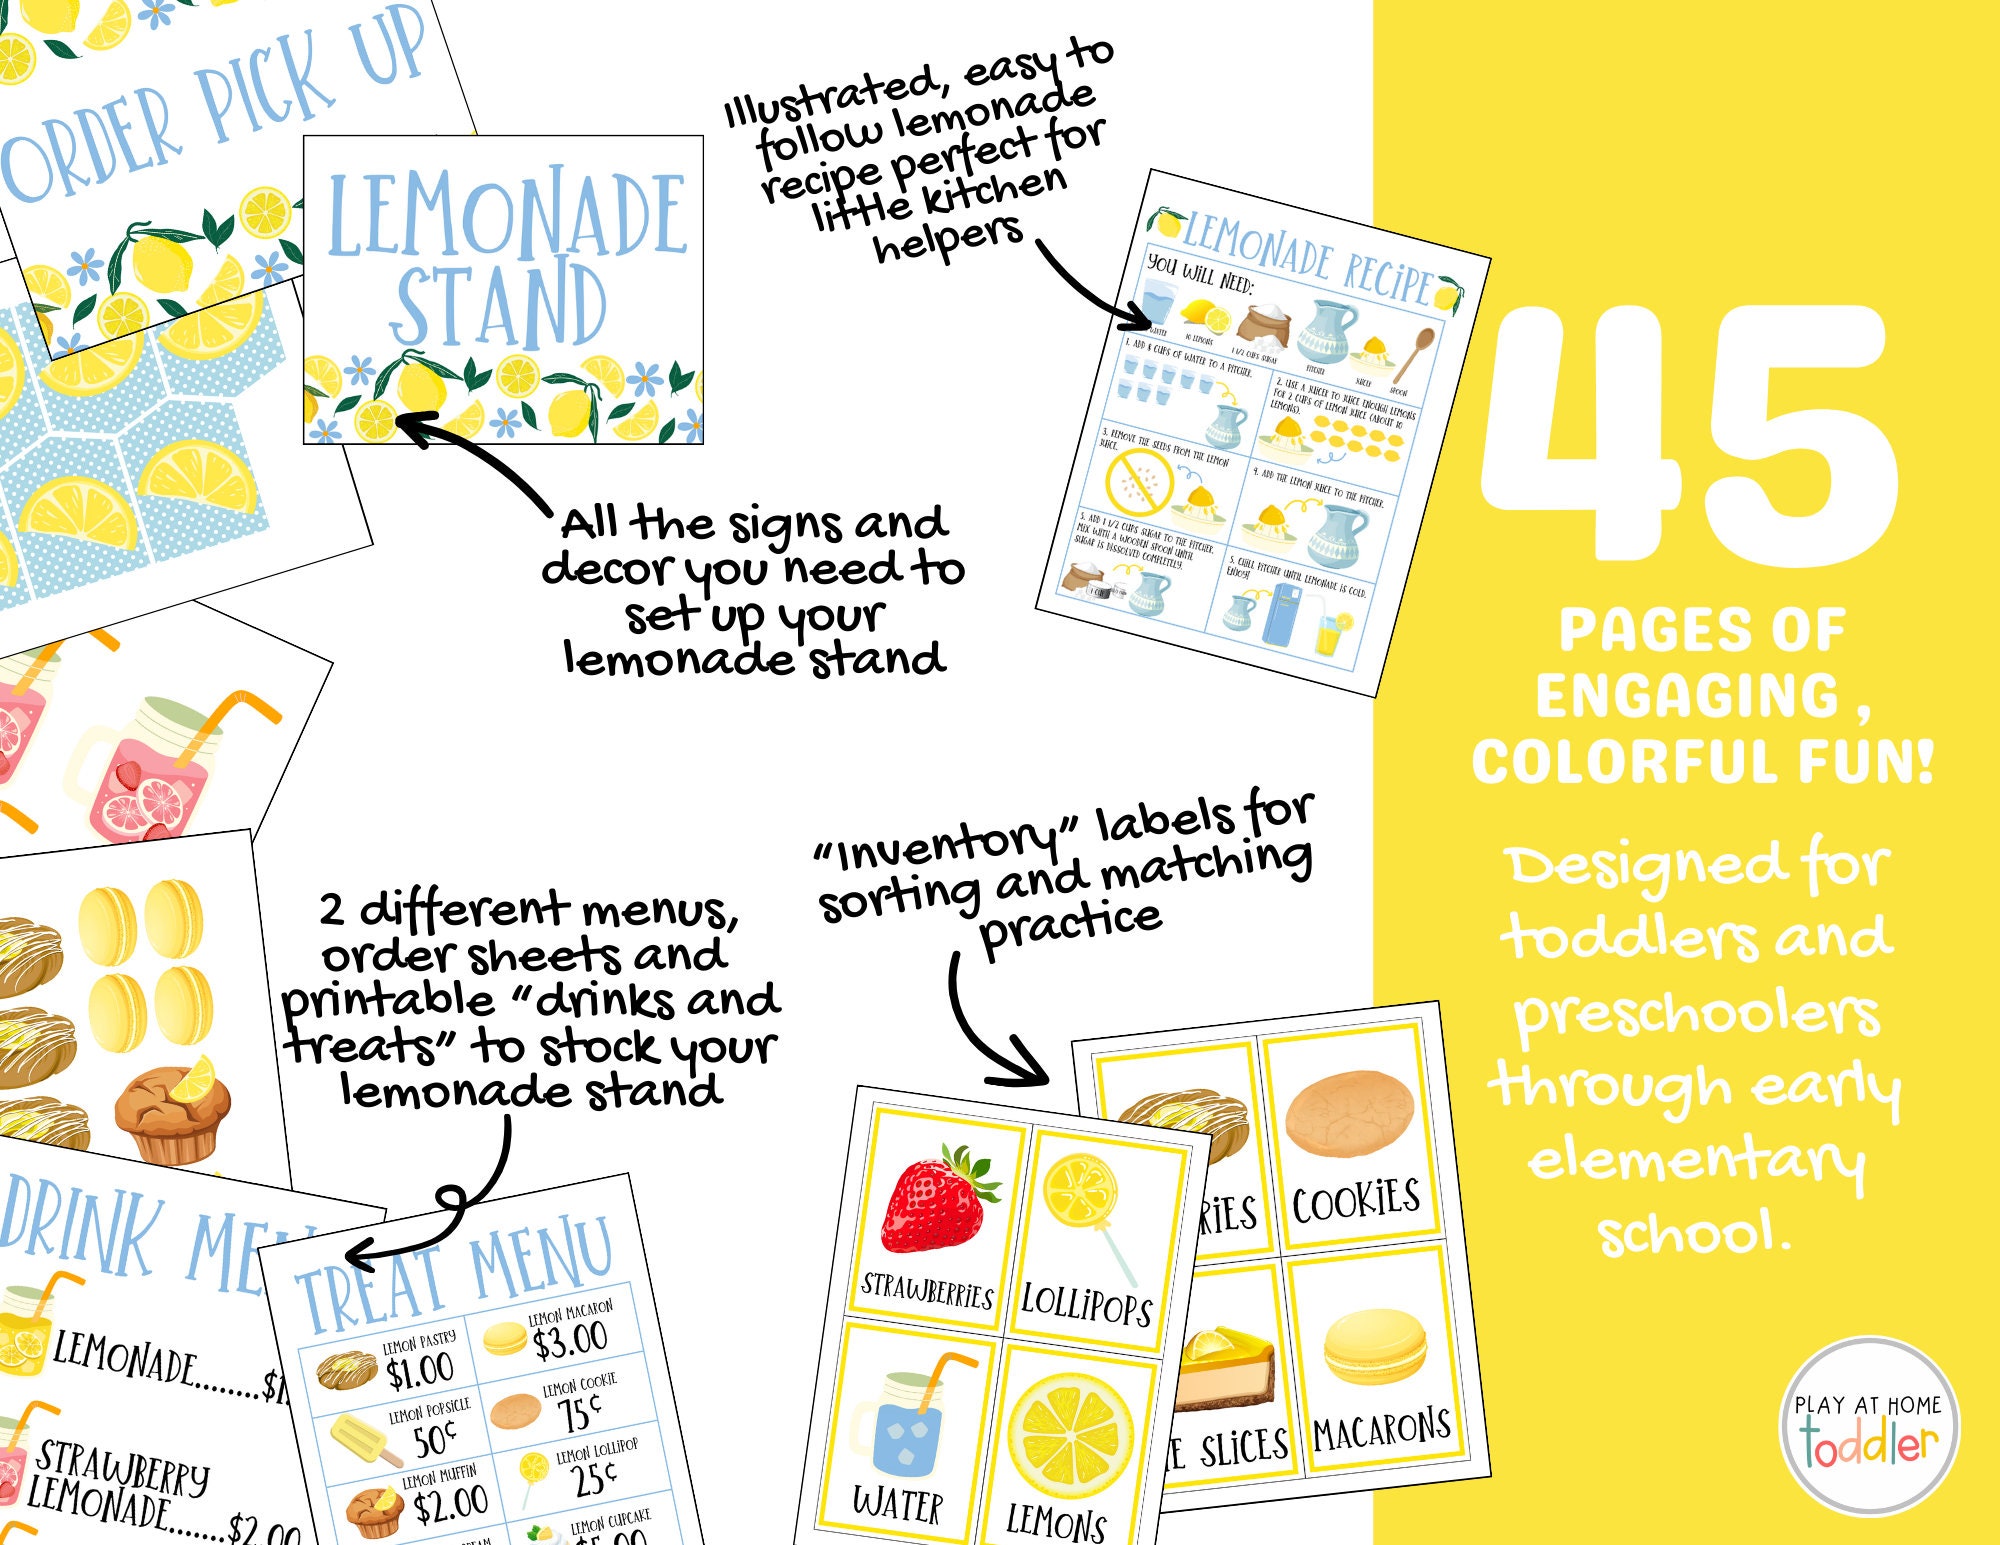 ORDER PICK UP
LEMONADE
STAND
Illustrated, easy to
follow lemonade
recipe perfect for
little kitchen
helpers
All the signs and
decor you need to
set up your
lemonade stand
LEMONADE RECIPE
YOU WILL NEED:
WATER
10 LEMONS
1 1/2 CUPS SUGAR
PITCHER
JUICER
SPOON
1. ADD 8 CUPS OF WATER TO A PITCHER.
2. USE A JUICER TO JUICE ENOUGH LEMONS
FOR 2 CUPS OF LEMON JUICE (ABOUT 10
LEMONS).
3. REMOVE THE SEEDS FROM THE LEMON
JUICE.
4. ADD THE LEMON JUICE TO THE PITCHER.
5. ADD 1 1/2 CUPS SUGAR TO THE PITCHER.
MIX WITH A WOODEN SPOON UNTIL
SUGAR IS DISSOLVED COMPLETELY.
5. CHILL PITCHER UNTIL LEMONADE IS COLD.
ENJOY!
1 CUP
45
PAGES OF
ENGAGING ,
COLORFUL FUN!
Designed for
toddlers and
preschoolers
through early
elementary
school.
PLAY AT HOME
toddler
2 different menus,
order sheets and
printable "drinks and
treats" to stock your
lemonade stand
"Inventory" labels for
sorting and matching
practice
DRINK ME
LEMONADE........$1.
STRAWBERRY
LEMONADE.......$2.00
TREAT MENU
LEMON PASTRY
$1.00
LEMON MACARON
$3.00
LEMON POPSICLE
50¢
LEMON COOKIE
75¢
LEMON MUFFIN
$2.00
LEMON LOLLIPOP
25¢
LEMON CUPCAKE
STRAWBERRIES
LOLLIPOPS
WATER
LEMONS
RIES
COOKIES
E SLICES
MACARONS